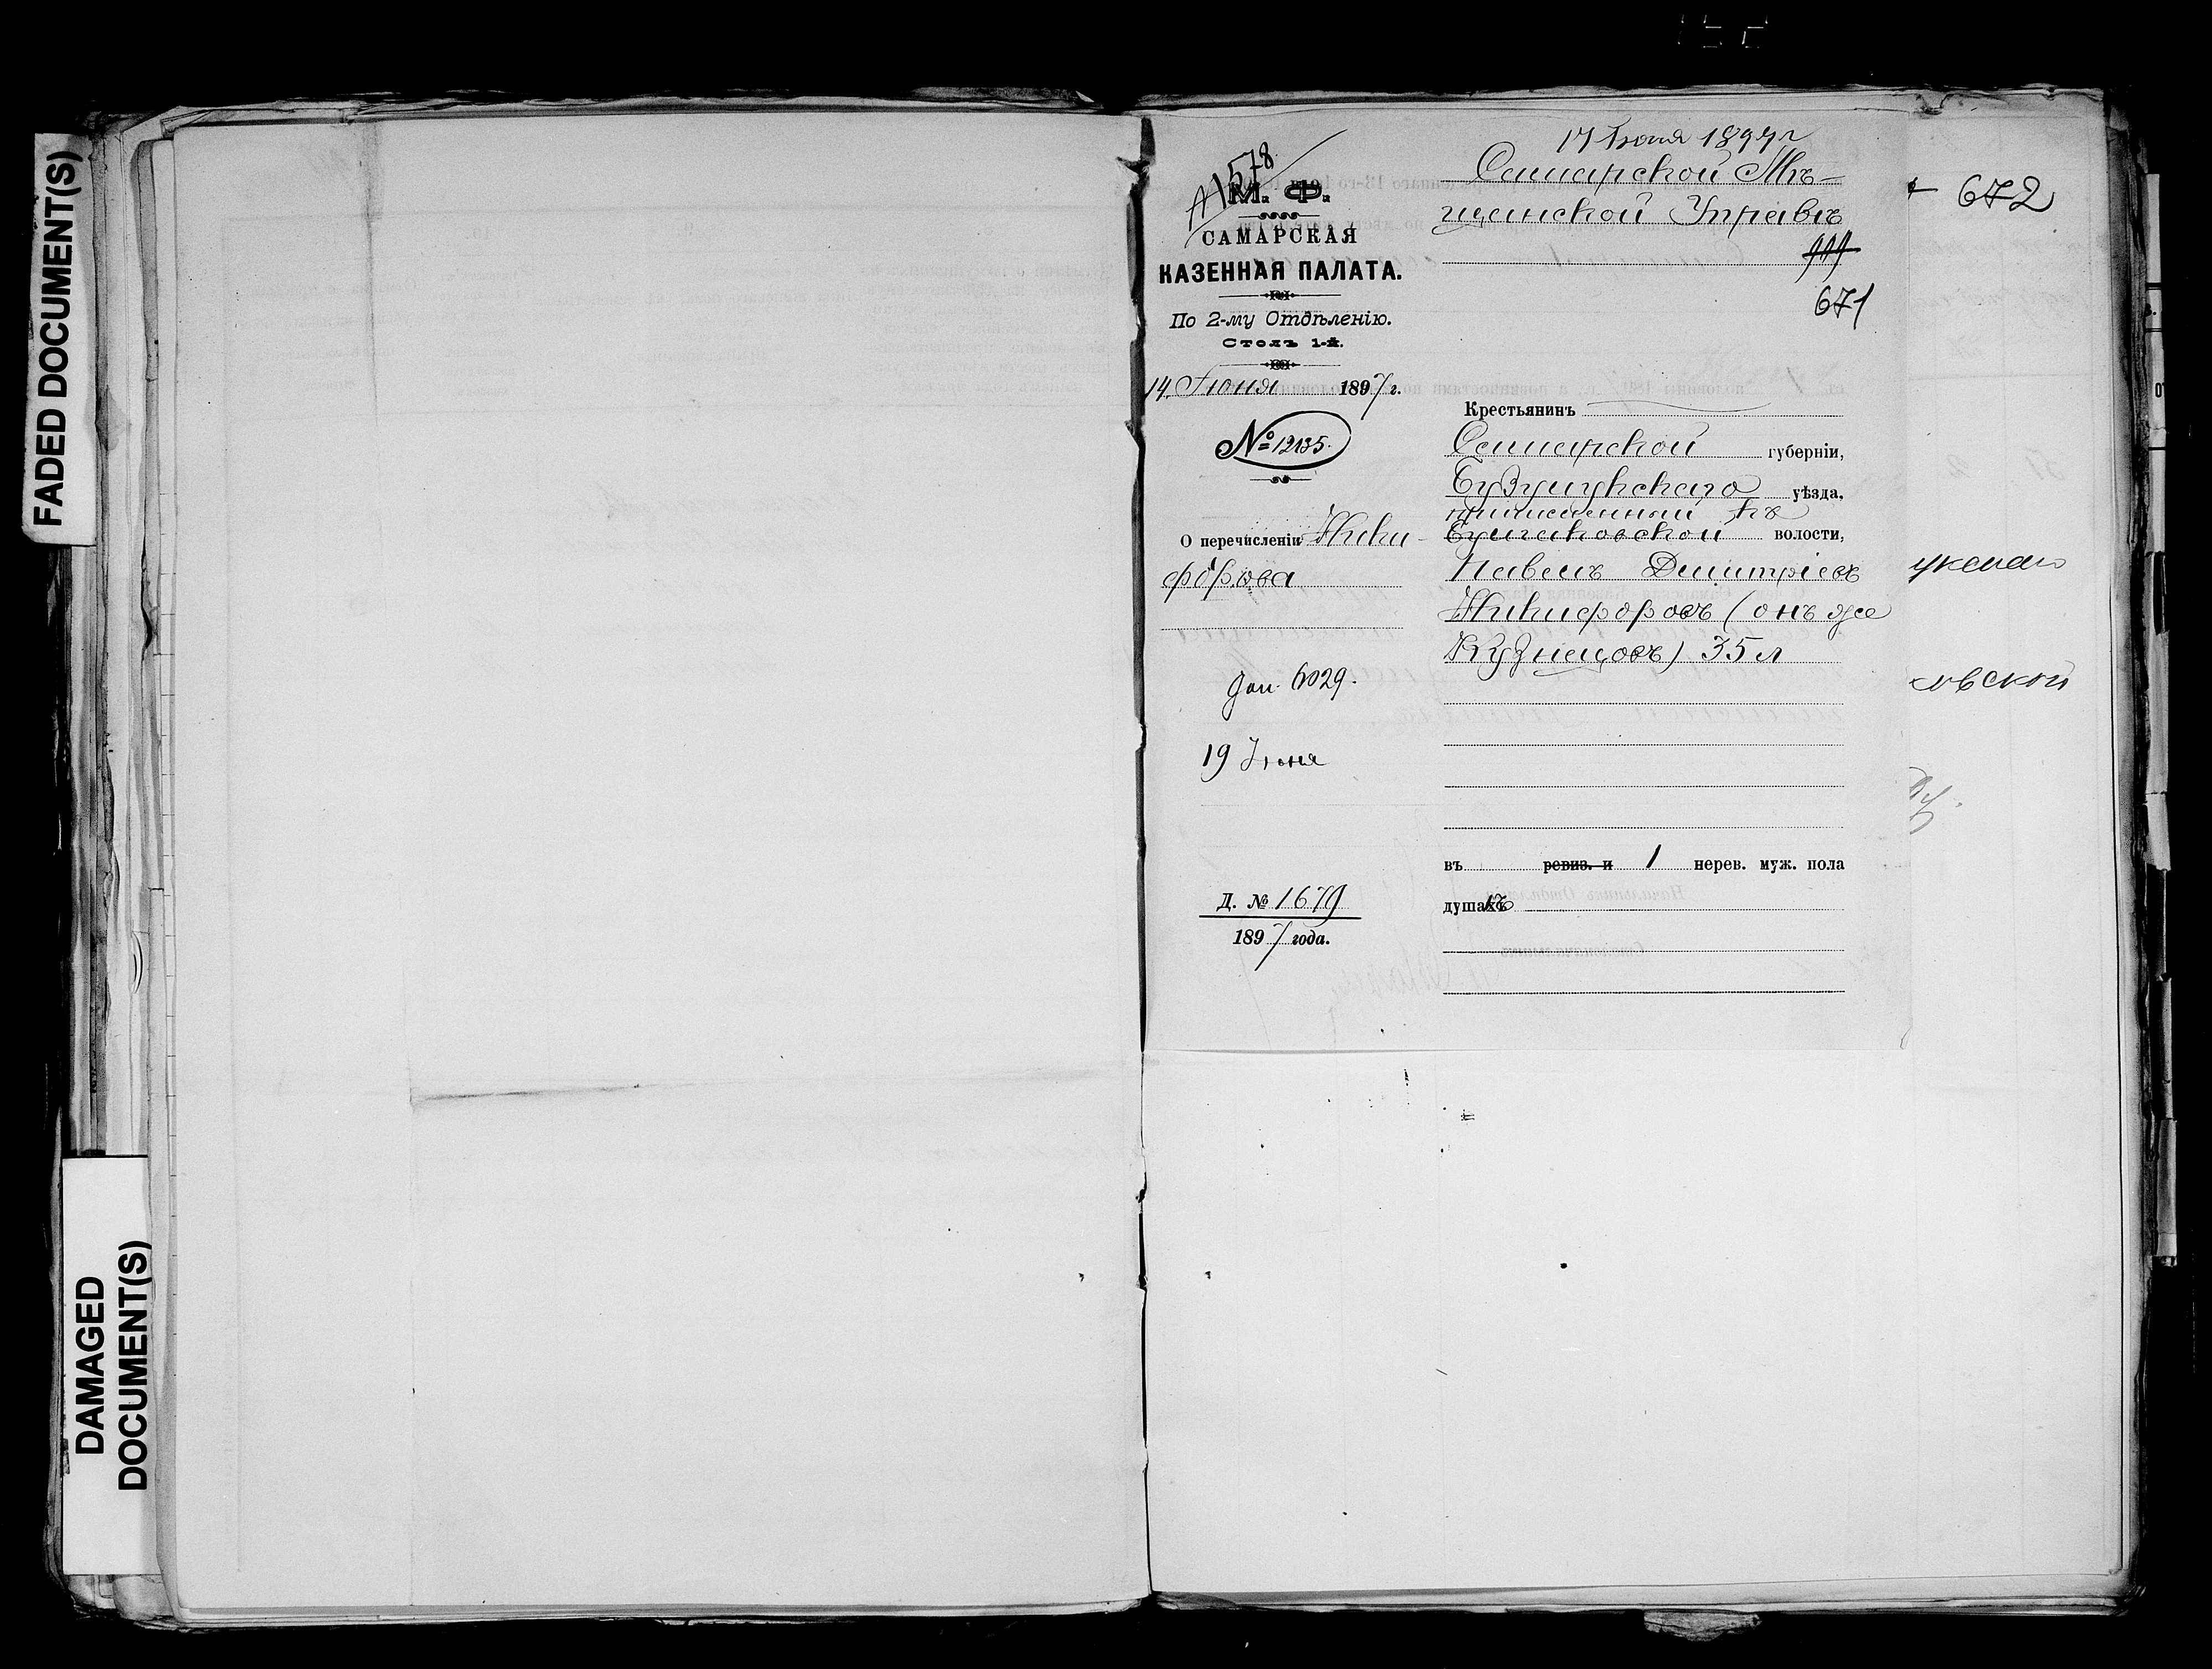 FADED DOCUMENT(S)
DAMAGED
DOCUMENT(S)
578
М. Ф.
САМАРСКАЯ
КАЗЕННАЯ ПАЛАТА.
По 2-му Отдѣленію.
Столъ 1-й.
14 Іюня 1897 г.
№ 12135.
О перечисленіи Ники-
форова
6029.
19 Іюня
Д. № 1679
1897 года.
17 Іюня 1897 г
Самарской Мѣ-
щанской Управѣ
671
Крестьянинъ
Самарской губерніи,
Бузулукскаго уѣзда,
причисленный къ
волости,
Павелъ Дмитріевъ
Никифоровъ (онъ же
Кузнецовъ) 35 л
въ ревиз. и 1 нерев. муж. пола
душахъ
672